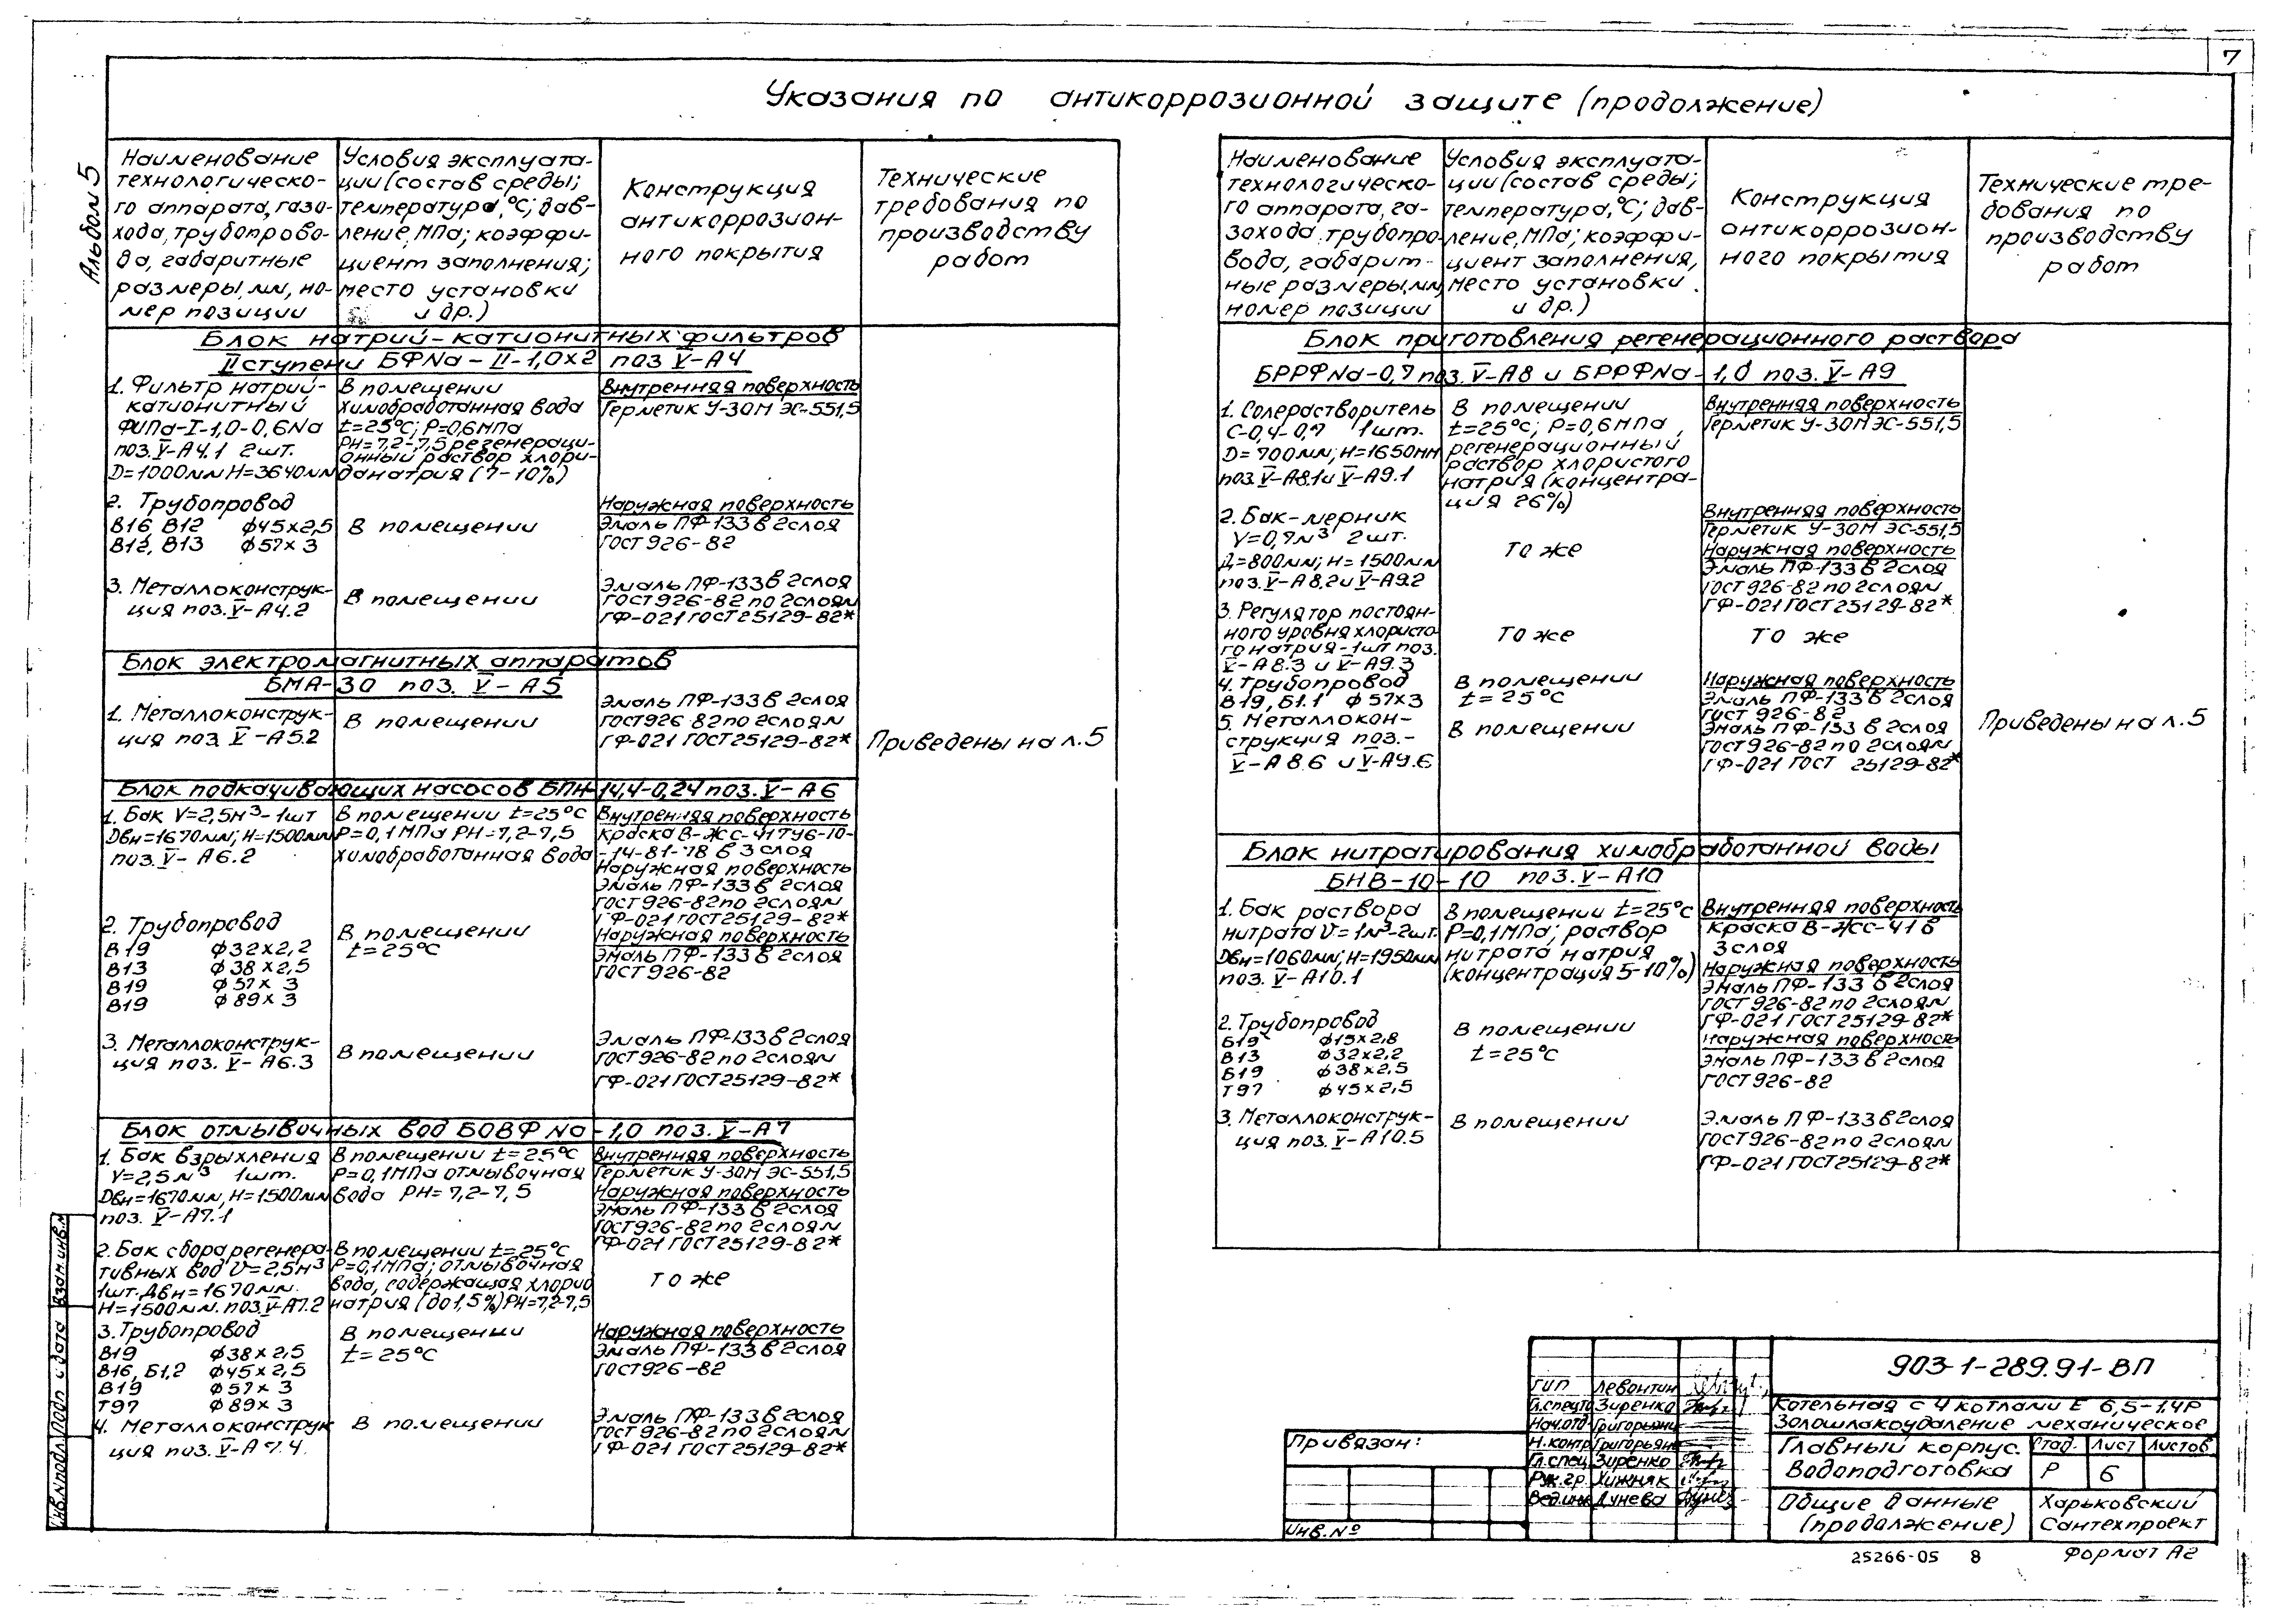 7
Альбом 5
Указания по антикоррозионной защите (продолжение)
Наименование
технологическо-
го аппарата, газо-
хода, трубопрово-
да, габаритные
размеры, мм, но-
мер позиции
Условия эксплуата-
ции (состав среды;
температура, °С; дав-
ление, МПа; коэффи-
циент заполнения;
место установки
и др.)
Конструкция
антикоррозион-
ного покрытия
Технические
требования по
производству
работ
Блок натрий-катионитных фильтров
II ступени БФNa-II-1,0х2 поз V-А4
1. Фильтр натрий-
катионитный
ФИПа-I-1,0-0,6Na
поз. V-А4.1 2шт.
D=1000мм H=3640мм
В помещении
химобработанная вода
t=25°С; Р=0,6МПа
РН=7,2-7,5 регенераци-
онный раствор хлори-
да натрия (7-10%)
Внутренняя поверхность
Герметик У-30М ЭС-551,5
2. Трубопровод
В16, В12 ф45х2,5
В12, В13 ф57х3
В помещении
Наружная поверхность
Эмаль ПФ-133 в 2слоя
ГОСТ 926-82
3. Металлоконструк-
ция поз. V-А4.2
В помещении
Эмаль ПФ-133 в 2слоя
ГОСТ 926-82 по 2слоям
ГФ-021 ГОСТ 25129-82*
Блок электромагнитных аппаратов
БМА-30 поз. V-А5
1. Металлоконструк-
ция поз. V-А5.2
В помещении
Эмаль ПФ-133 в 2слоя
ГОСТ 926 82 по 2слоям
ГФ-021 ГОСТ 25129-82*
Приведены на л.5
Блок подкачивающих насосов БПН-14,4-0,24 поз. V-А6
1. Бак V=2,5м³-1шт
Двн=1670мм; Н=1500мм
поз. V-А6.2
В помещении t=25°С
Р=0,1МПа РН=7,2-7,5
химобработанная вода
Внутренняя поверхность
краска В-ЖС-41 ТУ6-10-
-14-81-78 в 3 слоя
Наружная поверхность
Эмаль ПФ-133 в 2слоя
ГОСТ 926-82 по 2слоям
ГФ-021 ГОСТ 25129-82*
2. Трубопровод
В19 ф32х2,2
В13 ф38х2,5
В19 ф57х3
В19 ф89х3
В помещении
t=25°С
Наружная поверхность
Эмаль ПФ-133 в 2слоя
ГОСТ 926-82
3. Металлоконструк-
ция поз. V-А6.3
В помещении
Эмаль ПФ-133 в 2слоя
ГОСТ 926-82 по 2слоям
ГФ-021 ГОСТ 25129-82*
Блок отмывочных вод БОВФ Na-1,0 поз. V-А7
1. Бак взрыхления
V=2,5м³ 1шт.
Двн=1670мм, Н=1500мм
поз. V-А7.1
В помещении t=25°С
Р=0,1МПа отмывочная
вода РН=7,2-7,5
Внутренняя поверхность
Герметик У-30М ЭС-551,5
Наружная поверхность
Эмаль ПФ-133 в 2слоя
ГОСТ 926-82 по 2слоям
ГФ-021 ГОСТ 25129-82*
2. Бак сбора регенера-
тивных вод V=2,5м³
1шт. Двн=1670мм.
Н=1500мм. поз. V-А7.2
В помещении t=25°С
Р=0,1МПа; отмывочная
вода, содержащая хлорид
натрия (до 1,5%) РН=7,2-7,5
То же
3. Трубопровод
В19 ф38х2,5
В16, Б1,2 ф45х2,5
В19 ф57х3
Т97 ф89х3
В помещении
t=25°С
Наружная поверхность
Эмаль ПФ-133 в 2слоя
ГОСТ 926-82
4. Металлоконструк
ция поз. V-А7.4.
В помещении
Эмаль ПФ-133 в 2слоя
ГОСТ 926-82 по 2слоям
ГФ-021 ГОСТ 25129-82*
Наименование
технологическо-
го аппарата, га-
зохода трубопро-
вода, габарит-
ные размеры, мм,
номер позиции
Условия эксплуата-
ции (состав среды;
температура, °С; дав-
ление, МПа; коэффи-
циент заполнения,
место установки
и др.)
Конструкция
антикоррозион-
ного покрытия
Технические тре-
бования по
производству
работ
Блок приготовления регенерационного раствора
БРРФNa-0,7 поз. V-А8 и БРРФNa-1,0 поз. V-А9
1. Солерастворитель
С-0,4-0,7 1шт.
D=700мм; Н=1650мм
поз. V-А8.1 и V-А9.1
В помещении
t=25°С; Р=0,6МПа,
регенерационный
раствор хлористого
натрия (концентра-
ция 26%)
Внутренняя поверхность
Герметик У-30М ЭС-551,5
2. Бак-мерник
V=0,7м³ 2шт.
Д=800мм; Н=1500мм
поз. V-А8.2 и V-А9.2
То же
Внутренняя поверхность
Герметик У-30М ЭС-551,5
Наружная поверхность
Эмаль ПФ-133 в 2слоя
ГОСТ 926-82 по 2слоям
ГФ-021 ГОСТ 25129-82*
3. Регулятор постоян-
ного уровня хлористо-
го натрия-1шт поз.
V-А8.3 и V-А9.3
То же
То же
4. Трубопровод
В19, Б1.1 ф57х3
В помещении
t=25°С
Наружная поверхность
Эмаль ПФ-133 в 2слоя
ГОСТ 926-82
5. Металлокон-
струкция поз.-
V-А8.6 и V-А9.6
В помещении
Эмаль ПФ-133 в 2слоя
ГОСТ 926-82 по 2слоям
ГФ-021 ГОСТ 25129-82*
Приведены на л.5
Блок нитратирования химобработанной воды
БНВ-10-10 поз. V-А10
1. Бак раствора
нитрата V=1м³-2шт.
Двн=1060мм; Н=1950мм
поз. V-А10.1
В помещении t=25°С
Р=0,1МПа; раствор
нитрата натрия
(концентрация 5-10%)
Внутренняя поверхность
краска В-ЖС-41 в
3слоя
Наружная поверхность
Эмаль ПФ-133 в 2слоя
ГОСТ 926-82 по 2слоям
ГФ-021 ГОСТ 25129-82*
2. Трубопровод
Б19 ф15х2,8
В13 ф32х2,2
Б19 ф38х2,5
Т97 ф45х2,5
В помещении
t=25°С
Наружная поверхность
Эмаль ПФ-133 в 2слоя
ГОСТ 926-82
3. Металлоконструк-
ция поз. V-А10.5
В помещении
Эмаль ПФ-133 в 2слоя
ГОСТ 926-82 по 2слоям
ГФ-021 ГОСТ 25129-82*
Инв.Nподл. Подп и дата Взам.инв.N
Привязан:
Инв.№
ГИП Левонтин
Гл.спец.то Зиренко
Нач.отд. Григорьянц
Н.контр Григорьянц
Гл.спец. Зиренко
Рук.гр. Хижняк
Вед.инж Дунева
903-1-289.91-ВП
Котельная с 4 котлами Е 6,5-1,4Р
Золошлакоудаление механическое
Главный корпус.
Водоподготовка
Стад. Лист Листов
Р 6
Общие данные
(продолжение)
Харьковский
Сантехпроект
25266-05 8
Формат А2